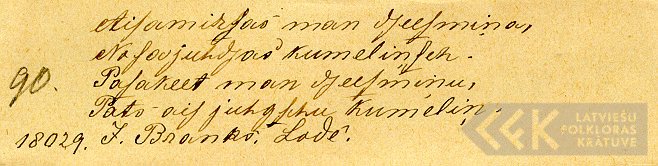 Aisamirsās man dseesmiņa,
Nosajuhdsās kumelinsch.
90. Pasakeet man dseesmiņu,
Pats aisjuhgschu kumeliņ.
18029. J. Brants. Lodē.
LATVIEŠU
FOLKLORAS
KRĀTUVE